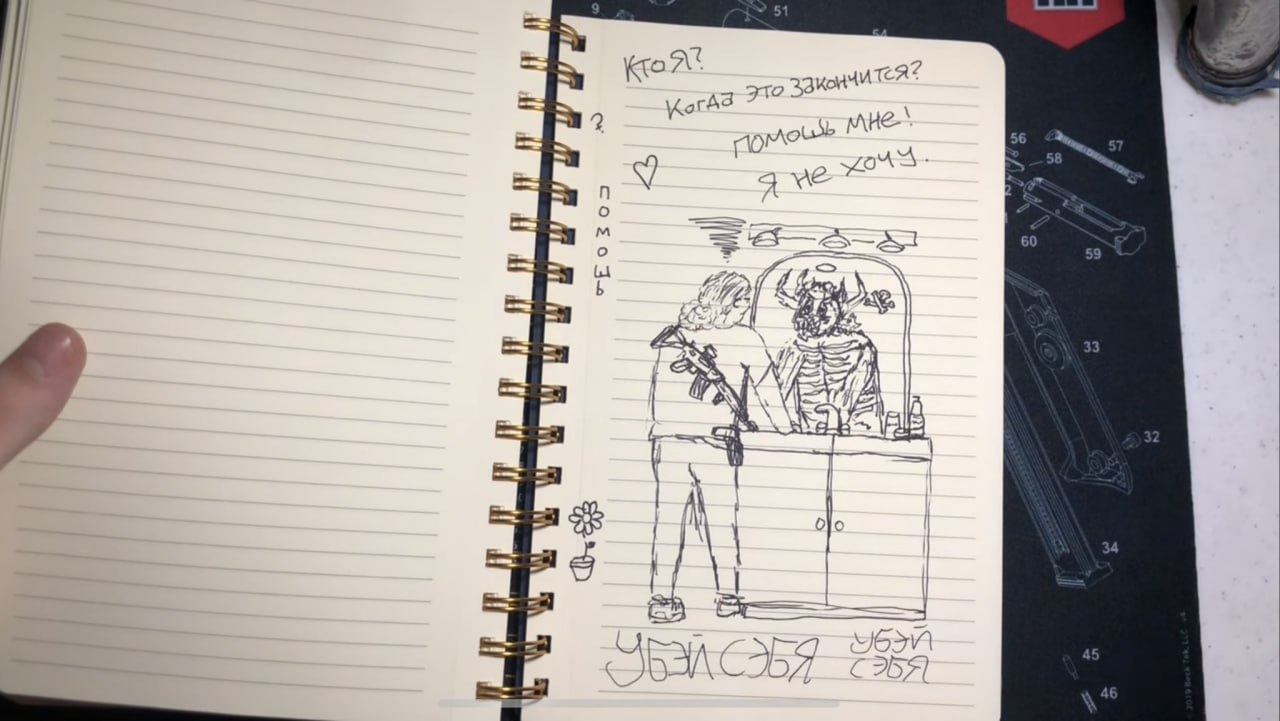 Кто я?
Когда это закончится?
помошь мне!
я не хочу.
?
помошь
УБЭЙ СЭБЯ
УБЭЙ
СЭБЯ
9
51
54
56
57
58
60
59
33
32
34
45
46